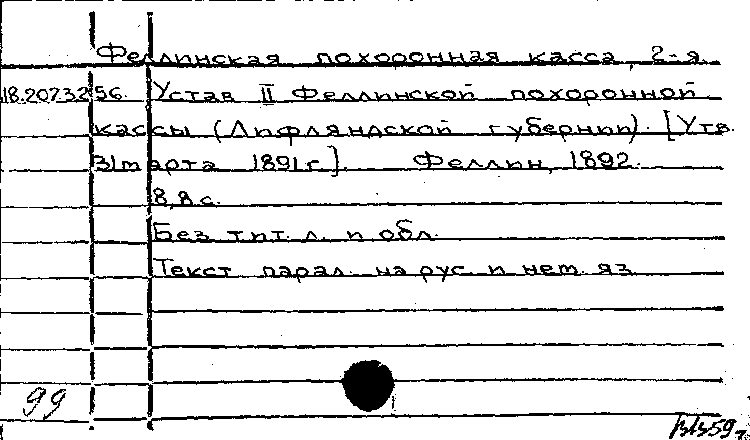 Феллинская похоронная касса, 2-я.
18.207.3.256. Устав II Феллинской похоронной
кассы (Лифляндской губернии). [Утв.
31 марта 1891 г.]. Феллин, 1892.
8,8 с.
Без тит. л. и обл.
Текст парал. на рус. и нем. яз.
99